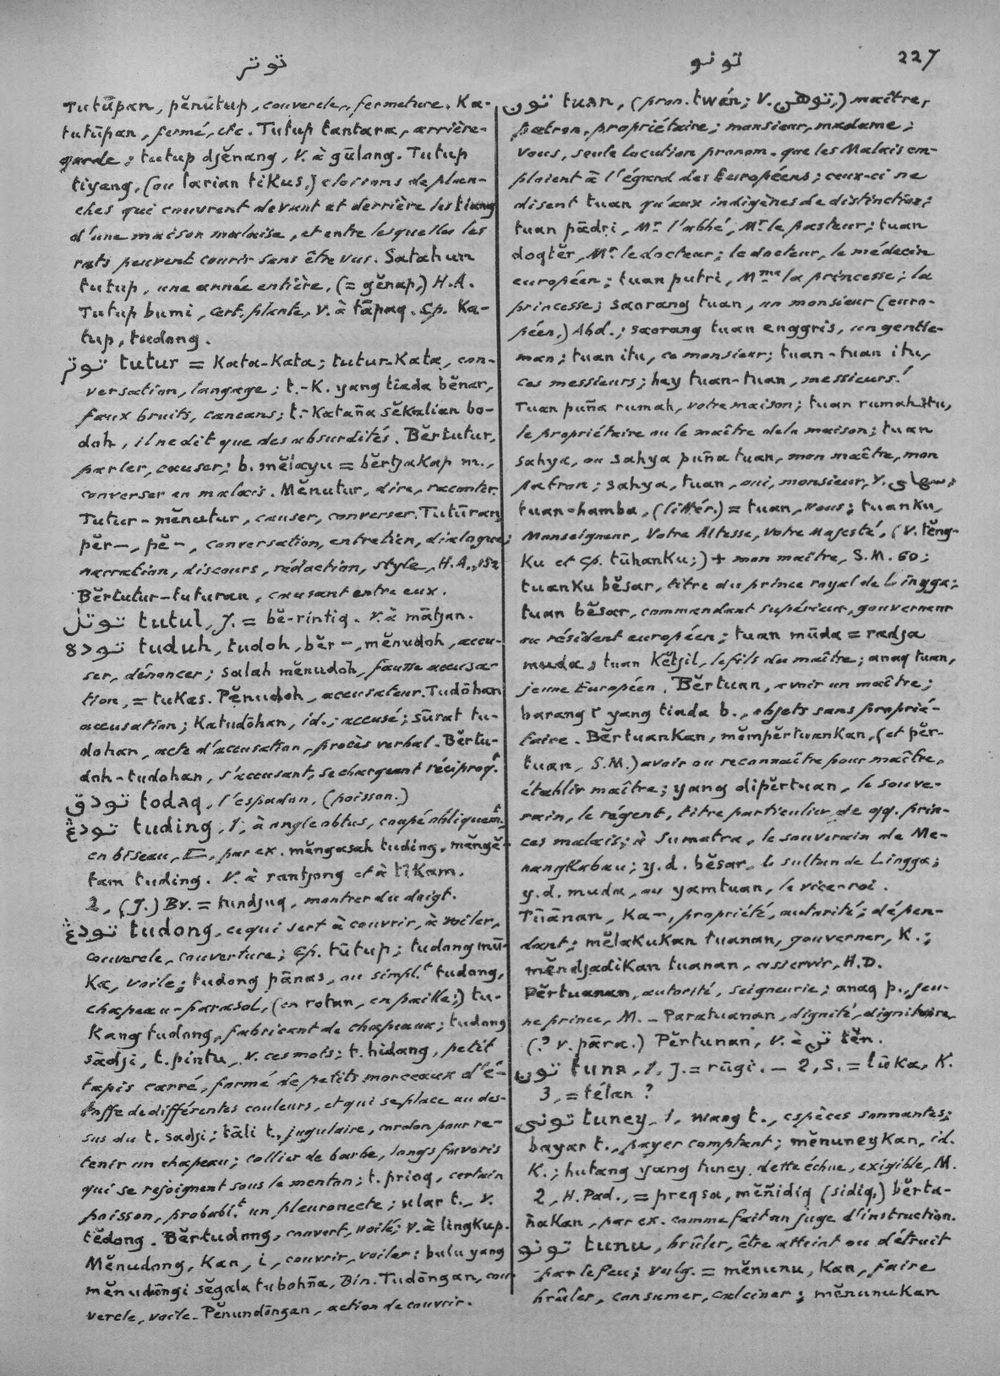 توتر
تونو 227
Tutūpan, pĕnūtup, couvercle, fermeture. Ka-
tutūpan, fermé, etc. Tutup tantara, arrière-
garde; tutup djĕnang, V. à gūlong. Tutup
tiyang, (ou larian tikus,) cloisons de plan-
ches qui couvrent devant et derrière les tiang
d'une maison malaise, et entre lesquelles les
rats peuvent courir sans être vus. Satahun
tutup, une année entière, (= gĕnap,) H.A.
Tutup bumi, cert. plante, V. à tāpaq. Cp. Ka-
tup, tudong.
توتر tutur = Kata-Kata; tutur-Kata, con-
versation, langage; t.-K. yang tiada bĕnar,
faux bruits, cancans; t.-Kataña sĕkalian bo-
doh, il ne dit que des absurdités. Bĕrtutur,
parler, causer; b. mĕlayu = bĕrtjakap m.,
converser en malais. Mĕnutur, dire, raconter.
Tutur-mĕnutur, causer, converser. Tutūran,
pĕr-, pĕ-, conversation, entretien, dialogue;
narration, discours, rédaction, style, H.A., 152
Bĕrtutur-tuturan, causant entre eux.
توتل tutul, J. = bĕ-rintiq. V. à mātjan.
توده tuduh, tudoh, bĕr-, mĕnudoh, accu-
ser, dénoncer; salah mĕnudoh, fausse accusa-
tion, = tukas. Pĕnudoh, accusateur. Tudōhan
accusation; Katudōhan, id.; accusé; sūrat tu-
dohan, acte d'accusation, procès verbal. Bĕrtu-
doh-tudohan, s'accusant, se chargeant réciproqt.
تودق todaq, l'espadon, (poisson.)
تودڠ tuding, 1, à angle obtus, coupé obliquemt.
en biseau, par ex. mĕngasah tuding, mĕngĕ-
tam tuding. V. à rantjong et à tikam.
2, (J.) Bv. = tundjuq, montrer du doigt.
تودڠ tudong, ce qui sert à couvrir, à voiler,
couvercle, couverture; Cp. tūtup; tudong mū-
Ka, voile; tudong pānas, ou simpl.t tudong,
chapeau-parasol, (en rotan, en paille;) tu-
Kang tudong, fabricant de chapeaux; tudong
sādji, t. pintu, V. ces mots; t. hidang, petit
tapis carré, formé de petits morceaux d'é-
toffe de différentes couleurs, et qui se place au des-
sus du t. sadji; tāli t., jugulaire, cordon pour re-
tenir un chapeau; collier de barbe, longs favoris
qui se rejoignent sous le menton; t. prioq, certain
poisson, probabl.t un pleuronecte; ular t., V.
tĕdong. Bĕrtudong, couvert, voilé; V. à lingkup.
Mĕnudong, Kan, i, couvrir, voiler: bulu yang
mĕnudōngi sĕgala tubohña, Bin. Tudōngan, cou-
vercle, voile. Pĕnundōngan, action de couvrir.
تون tuan, (pron. twán; V. توهن,) maître,
patron, propriétaire; monsieur, madame;
vous, seule locution pronom. que les Malais em-
ploient à l'égard des Européens; ceux-ci ne
disent tuan qu'aux indigènes de distinction;
tuan pādri, Mr l'abbé, Mr le pasteur; tuan
doqtĕr, Mr le docteur; le docteur, le médecin
européen; tuan putri, Mme la princesse; la
princesse; saorang tuan, un monsieur (euro-
péen,) Abd.; saorang tuan enggris, un gentle-
man; tuan itu, ce monsieur; tuan-tuan itu,
ces messieurs; hey tuan-tuan, messieurs!
Tuan puña rumah, votre maison; tuan rumah itu,
le propriétaire ou le maître de la maison; tuan
sahya, ou sahya puña tuan, mon maître, mon
patron; sahya, tuan, oui, monsieur, V. سهاي;
tuan-hamba, (littér.) = tuan, vous; tuanku,
Monseigneur, Votre Altesse, Votre Majesté, (V. tĕng-
Ku et Cp. tūhanKu;) + mon maître, S.M. 60;
tuanKu bĕsar, titre du prince royal de Lingga;
tuan bĕsar, commandant supérieur, gouverneur
ou résident européen; tuan mūda = radja
muda; tuan Kĕtjil, le fils du maître; anaq tuan,
jeune Européen. Bĕrtuan, avoir un maître;
barang2 yang tiada b., objets sans proprié-
taire. BĕrtuanKan, mĕmpĕrtuanKan, (et pĕr-
tuan, S.M.) avoir ou reconnaître pour maître,
établir maître; yang dipĕrtuan, le souve-
rain, le régent, titre particulier de qq. prin-
ces malais; à Sumatra, le souverain de Me-
nangKabau; y.d. bĕsar, le sultan de Lingga;
y.d. muda, ou yamtuan, le vice-roi.
Tūānan, Ka-, propriété, autorité; dépen-
dant; mĕlakuKan tuanan, gouverner, K.;
mĕndjadiKan tuanan, asservir, H.D.
Pĕrtuanan, autorité, seigneurie; anaq p., jeu-
ne prince, M. - Paratuanan, dignité, dignitaire
(? v. pāra.) Pĕrtunan, V. à تن tĕn.
تون tuna, 1, J. = rūgi. - 2, S. = lūka, K.
3, = télan ?
توني tuney, 1, wang t., espèces sonnantes;
bayar t., payer comptant; mĕnuneyKan, id.
K.; hutang yang tuney, dette échue, exigible, M.
2, H. Pad., = preqsa, mĕñidiq (sidiq,) bĕrta-
ñaKan, par ex. comme fait un juge d'instruction.
تونو tunu, brûler, être atteint ou détruit
par le feu; vulg. = mĕnunu, Kan, faire
brûler, consumer, calciner; mĕnunuKan